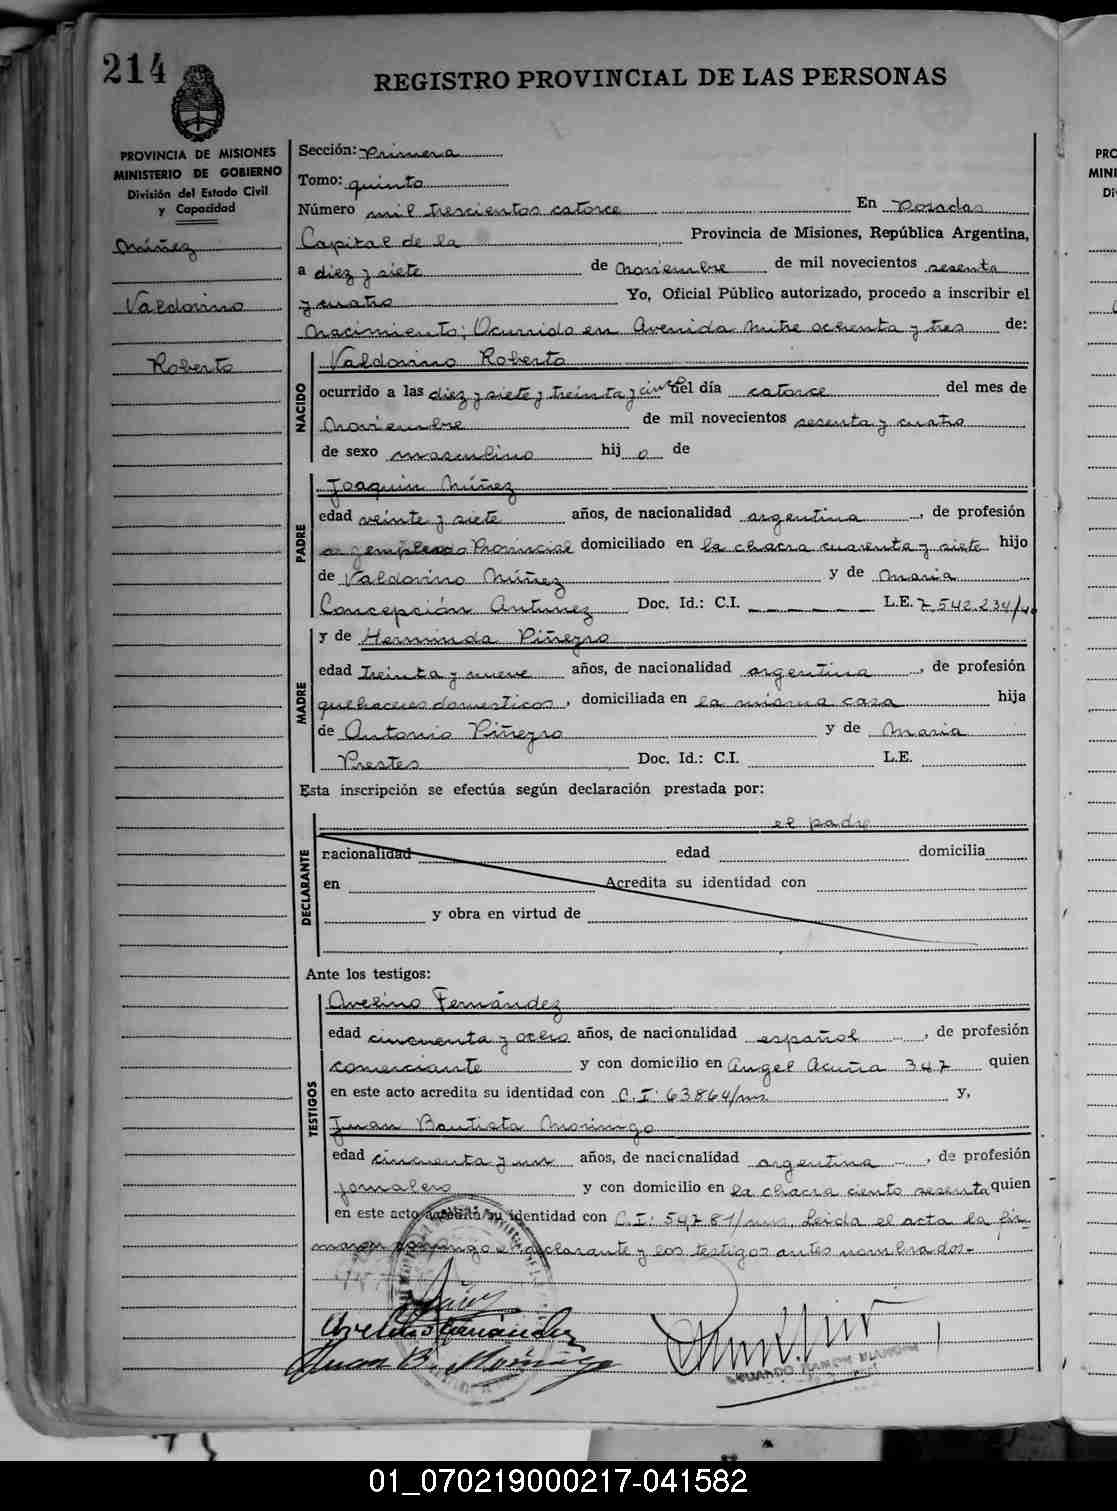 214
REGISTRO PROVINCIAL DE LAS PERSONAS
PROVINCIA DE MISIONES
MINISTERIO DE GOBIERNO
División del Estado Civil
y Capacidad
Núñez
Valdovino
Roberto
Sección: Primera
Tomo: quinto
Número mil trescientos catorce En Posadas
Capital de la Provincia de Misiones, República Argentina,
a diez y siete de Noviembre de mil novecientos sesenta
y cuatro Yo, Oficial Público autorizado, procedo a inscribir el
Nacimiento; Ocurrido en Avenida Mitre ochenta y tres de:
NACIDO
Valdovino Roberto
ocurrido a las diez y siete y treinta y cinco del día catorce del mes de
Noviembre de mil novecientos sesenta y cuatro
de sexo masculino hij o de
PADRE
Joaquin Núñez
edad veinte y siete años, de nacionalidad argentina, de profesión
empleado Provincial domiciliado en la chacra cuarenta y siete hijo
de Valdovino Núñez y de Maria
Concepción Antunez Doc. Id.: C.I. _ _ _ _ _ L.E. 7.542.234/
MADRE
y de Herminda Piñeyro
edad treinta y nueve años, de nacionalidad argentina, de profesión
quehaceres domesticos, domiciliada en la misma casa hija
de Antonio Piñeyro y de Maria
Prestes Doc. Id.: C.I. L.E.
Esta inscripción se efectúa según declaración prestada por:
DECLARANTE
el padre
nacionalidad edad domicilia
en Acredita su identidad con
y obra en virtud de
Ante los testigos:
TESTIGOS
Avelino Fernández
edad cincuenta y ocho años, de nacionalidad español, de profesión
comerciante y con domicilio en Angel Acuña 347 quien
en este acto acredita su identidad con C.I: 63864/mns y,
Juan Bautista Morinigo
edad cincuenta y un años, de nacionalidad argentina, de profesión
jornalero y con domicilio en la chacra ciento sesenta quien
en este acto acredita su identidad con C.I: 54781/mns. Leida el acta la fir-
man conmigo el declarante y los testigos antes nombrados.-
Avelino Fernández
Juan B. Morinigo
PRO
MINI
Di
01_070219000217-041582